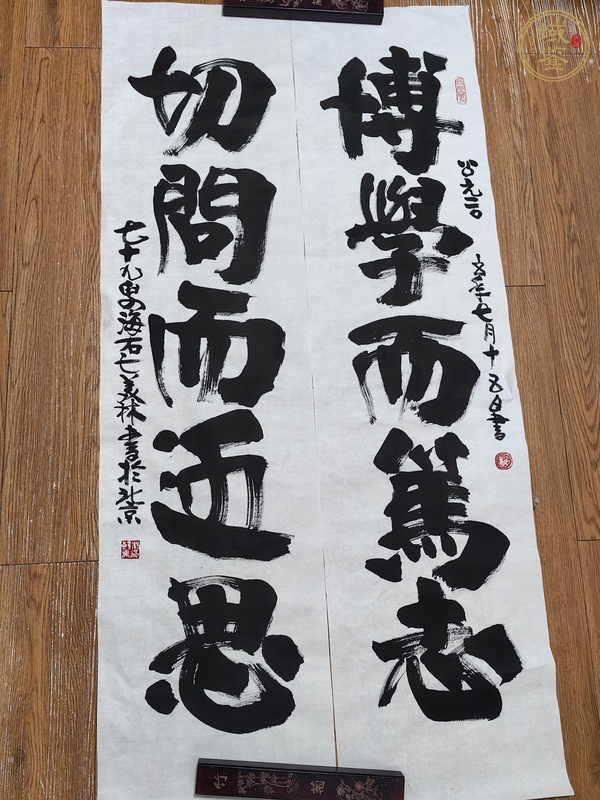 博學而篤志
公元二〇年七月十五日書
切問而近思
七十九叟海石美林書於北京
竹
菊